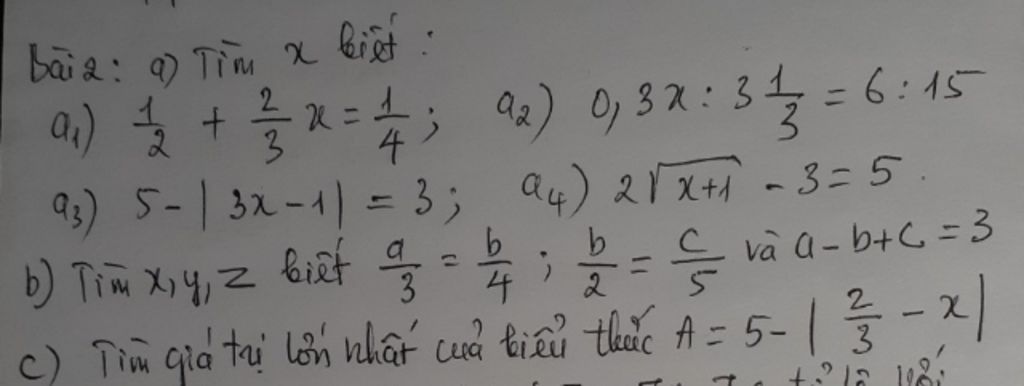 Bài 2: a) Tìm x biết:
a₁) 1/2 + 2/3 x = 1/4; a₂) 0,3x : 3 1/3 = 6 : 15
a₃) 5 - |3x - 1| = 3; a₄) 2√(x+1) - 3 = 5.
b) Tìm x, y, z biết a/3 = b/4; b/2 = c/5 và a - b + c = 3
c) Tìm giá trị lớn nhất của biểu thức A = 5 - |2/3 - x|